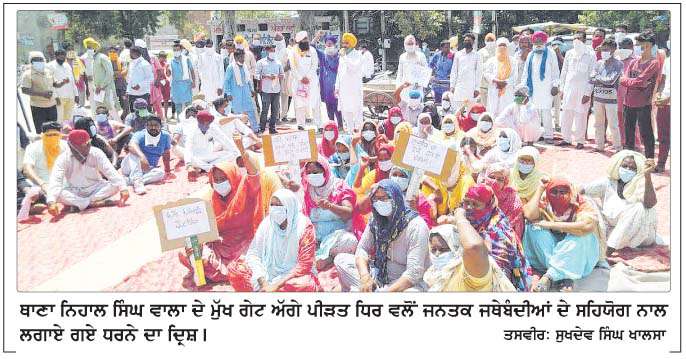 ਥਾਣਾ ਨਿਹਾਲ ਸਿੰਘ ਵਾਲਾ ਦੇ ਮੁੱਖ ਗੇਟ ਅੱਗੇ ਪੀੜਤ ਧਿਰ ਵਲੋਂ ਜਨਤਕ ਜਥੇਬੰਦੀਆਂ ਦੇ ਸਹਿਯੋਗ ਨਾਲ
ਲਗਾਏ ਗਏ ਧਰਨੇ ਦਾ ਦ੍ਰਿਸ਼। ਤਸਵੀਰ: ਸੁਖਦੇਵ ਸਿੰਘ ਖਾਲਸਾ